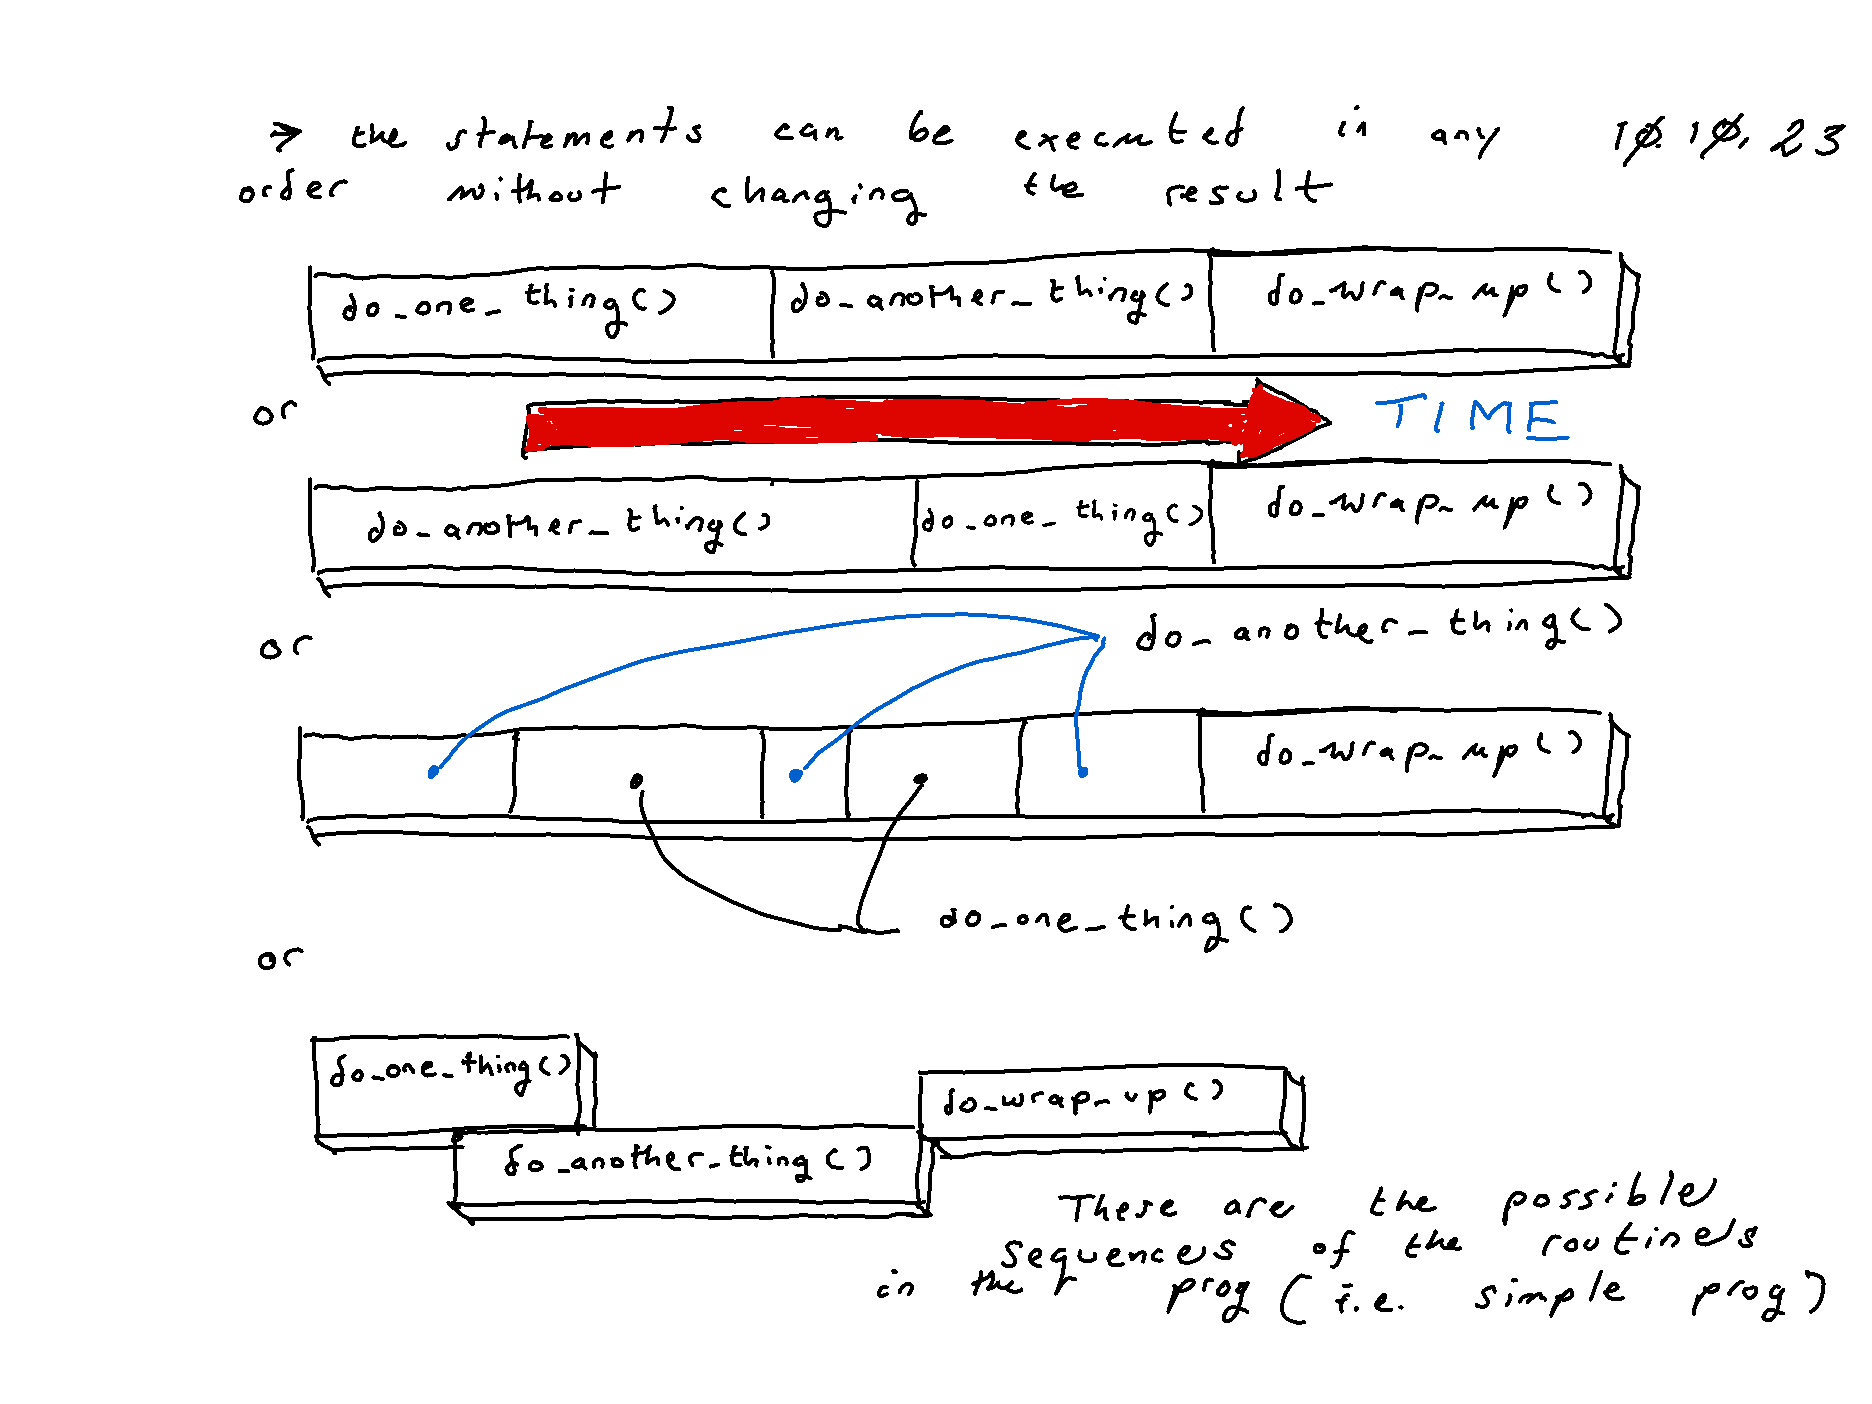 → the statements can be executed in any 10.10.23
order without changing the result
do_one_thing() do_another_thing() do_wrap_up()
or
TIME
do_another_thing() do_one_thing() do_wrap_up()
or
do_another_thing()
do_wrap_up()
do_one_thing()
or
do_one_thing()
do_wrap_up()
do_another_thing()
These are the possible
sequences of the routines
in the prog (i.e. simple prog)